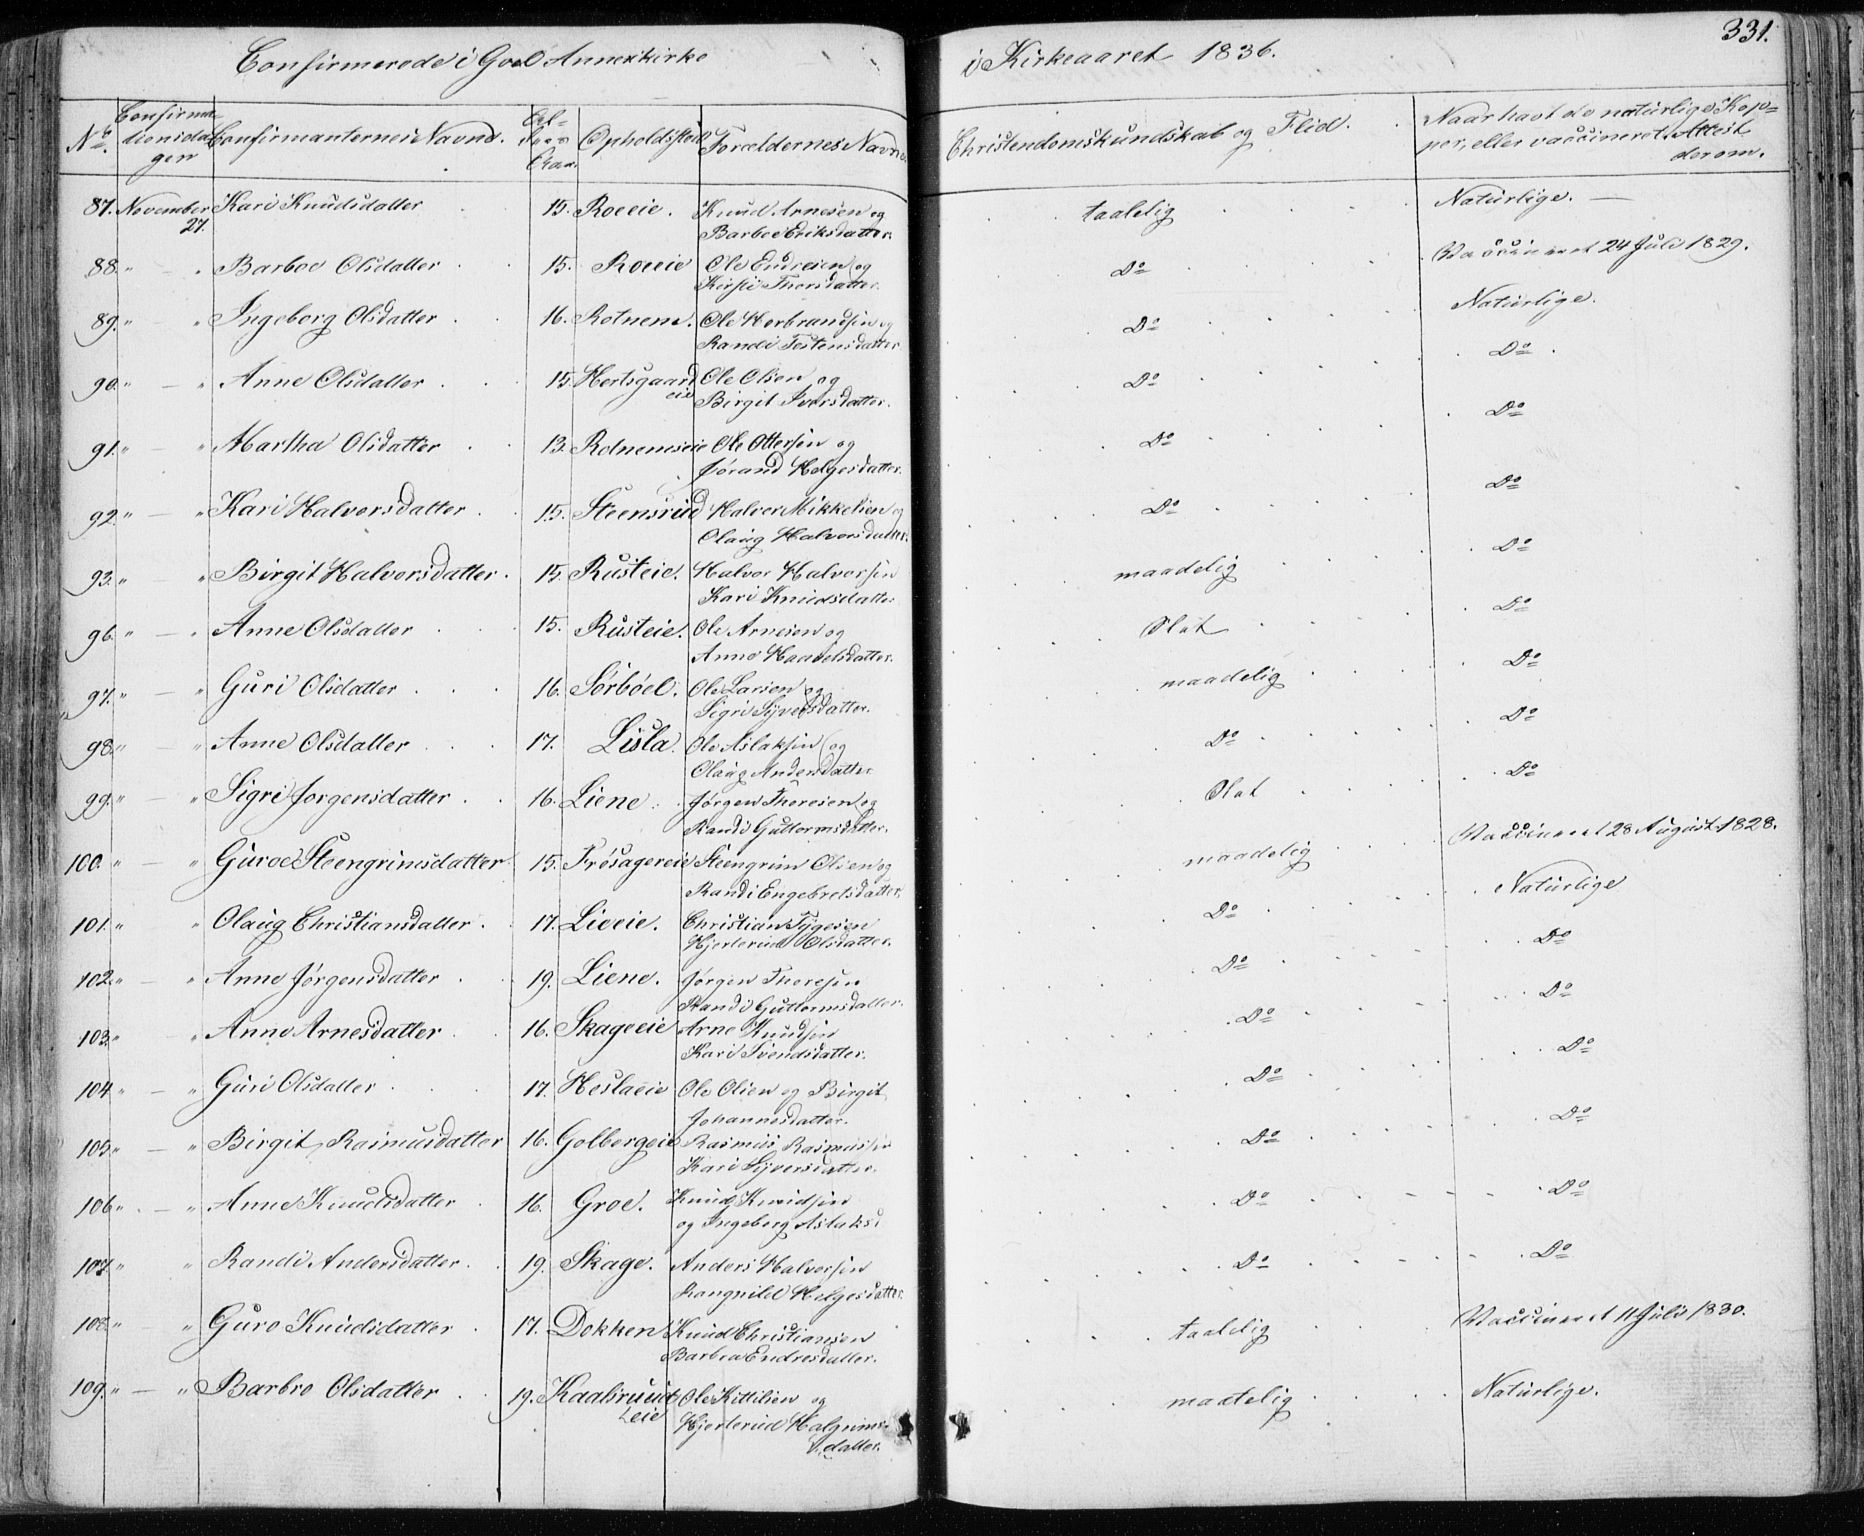 331.
Confirmerede i Goel Annexkirke i Kirkeaaret 1836.
No. Confirmationsdagen Confirmanternes Navne. Opholdssted Forældernes Navne Christendomskundskab og Flid. Naar havt de naturlige Kopper, eller vaccineret. Attest derom.
87. November 27. Kari Knudsdatter 15. Roeeie. Knud Arnesen og Barbro Eriksdatter. taalelig Naturlige. —
88. " — " Barboe Olsdatter 15. Roeeie Ole Endresen og Kirsti Thorsdatter. Do Vaccineret 24 Juli 1829.
89. " — " Ingeborg Olsdatter 16. Rotnem. Ole Herbrandsen og Randi Tostensdatter Do Naturlige.
90. " — " Anne Olsdatter 15. Hertsgaard eie Ole Olsen og Birgit Iversdatter. Do Do
91. " — " Martha Olsdatter 13. Rotnemseie Ole Ottersen og Jørand Helgesdatter. Do Do
92. " — " Kari Halvorsdatter 15. Steensrud Halvor Mikkelsen og Olaug Halvorsdatter. Do Do
93. " " Birgit Halvorsdatter. 15. Rusteie. Halvor Halvorsen Kari Knudsdatter maadelig Do
96. " — " Anne Olsdatter 15. Rusteie. Ole Arnesen og Anne Haavelsdatter. Slet Do
97. " — " Guri Olsdatter 16. Sørbøel. Ole Larsen og Sigri Syversdatter. maadelig Do
98. " — " Anne Olsdatter 17. Lisla. Ole Aslaksen og Olaug Andersdatter Do Do
99. " — " Sigri Jorgensdatter 16. Liene Jørgen Thoresen og Randi Guttormsdatter. Slet Do
100. " — " Guroe Steengrimsdatter 15. Frøsagereie Steengrim Olsen og Randi Engebretsdatter maadelig Vaccineret 28 August 1828.
101. " " Olaug Christiansdatter 17. Lieeie. Christian Tygesen Hjerterud Olsdatter. Do Naturlige
102. " — " Anne Jørgensdatter 19. Liene. Jørgen Thoresen Randi Guttormsdatter. Do Do
103. " — " Anne Arnesdatter 16. Skageeie Arne Knudsen Kari Svendsdatter. Do Do
104 " — " Guri Olsdatter 17. Heslaeie Ole Olsen og Birgit Johannesdatter. Do Do
105 " — " Birgit Rasmusdatter 16. Golbergeie Rasmus Rasmussen Kari Syversdatter. Do Do
106 " — " Anne Knudsdatter 16. Groe. Knud Knudsen og Ingeborg Aslaksd Do Do
107. " " Randi Andersdatter 19. Skage. Anders Halvorsen Rangnild Helgesdatter. Do Do
108. " — " Guro Knudsdatter 17. Dokken Knud Christiansen Barbra Endresdatter. taalelig Vaccineret 11 Juli 1830.
109. " — " Barbro Olsdatter 19. Kaalsruud eie Ole Kittilsen og Hjerterud Halgrimsdatter. maatelig Naturlige.